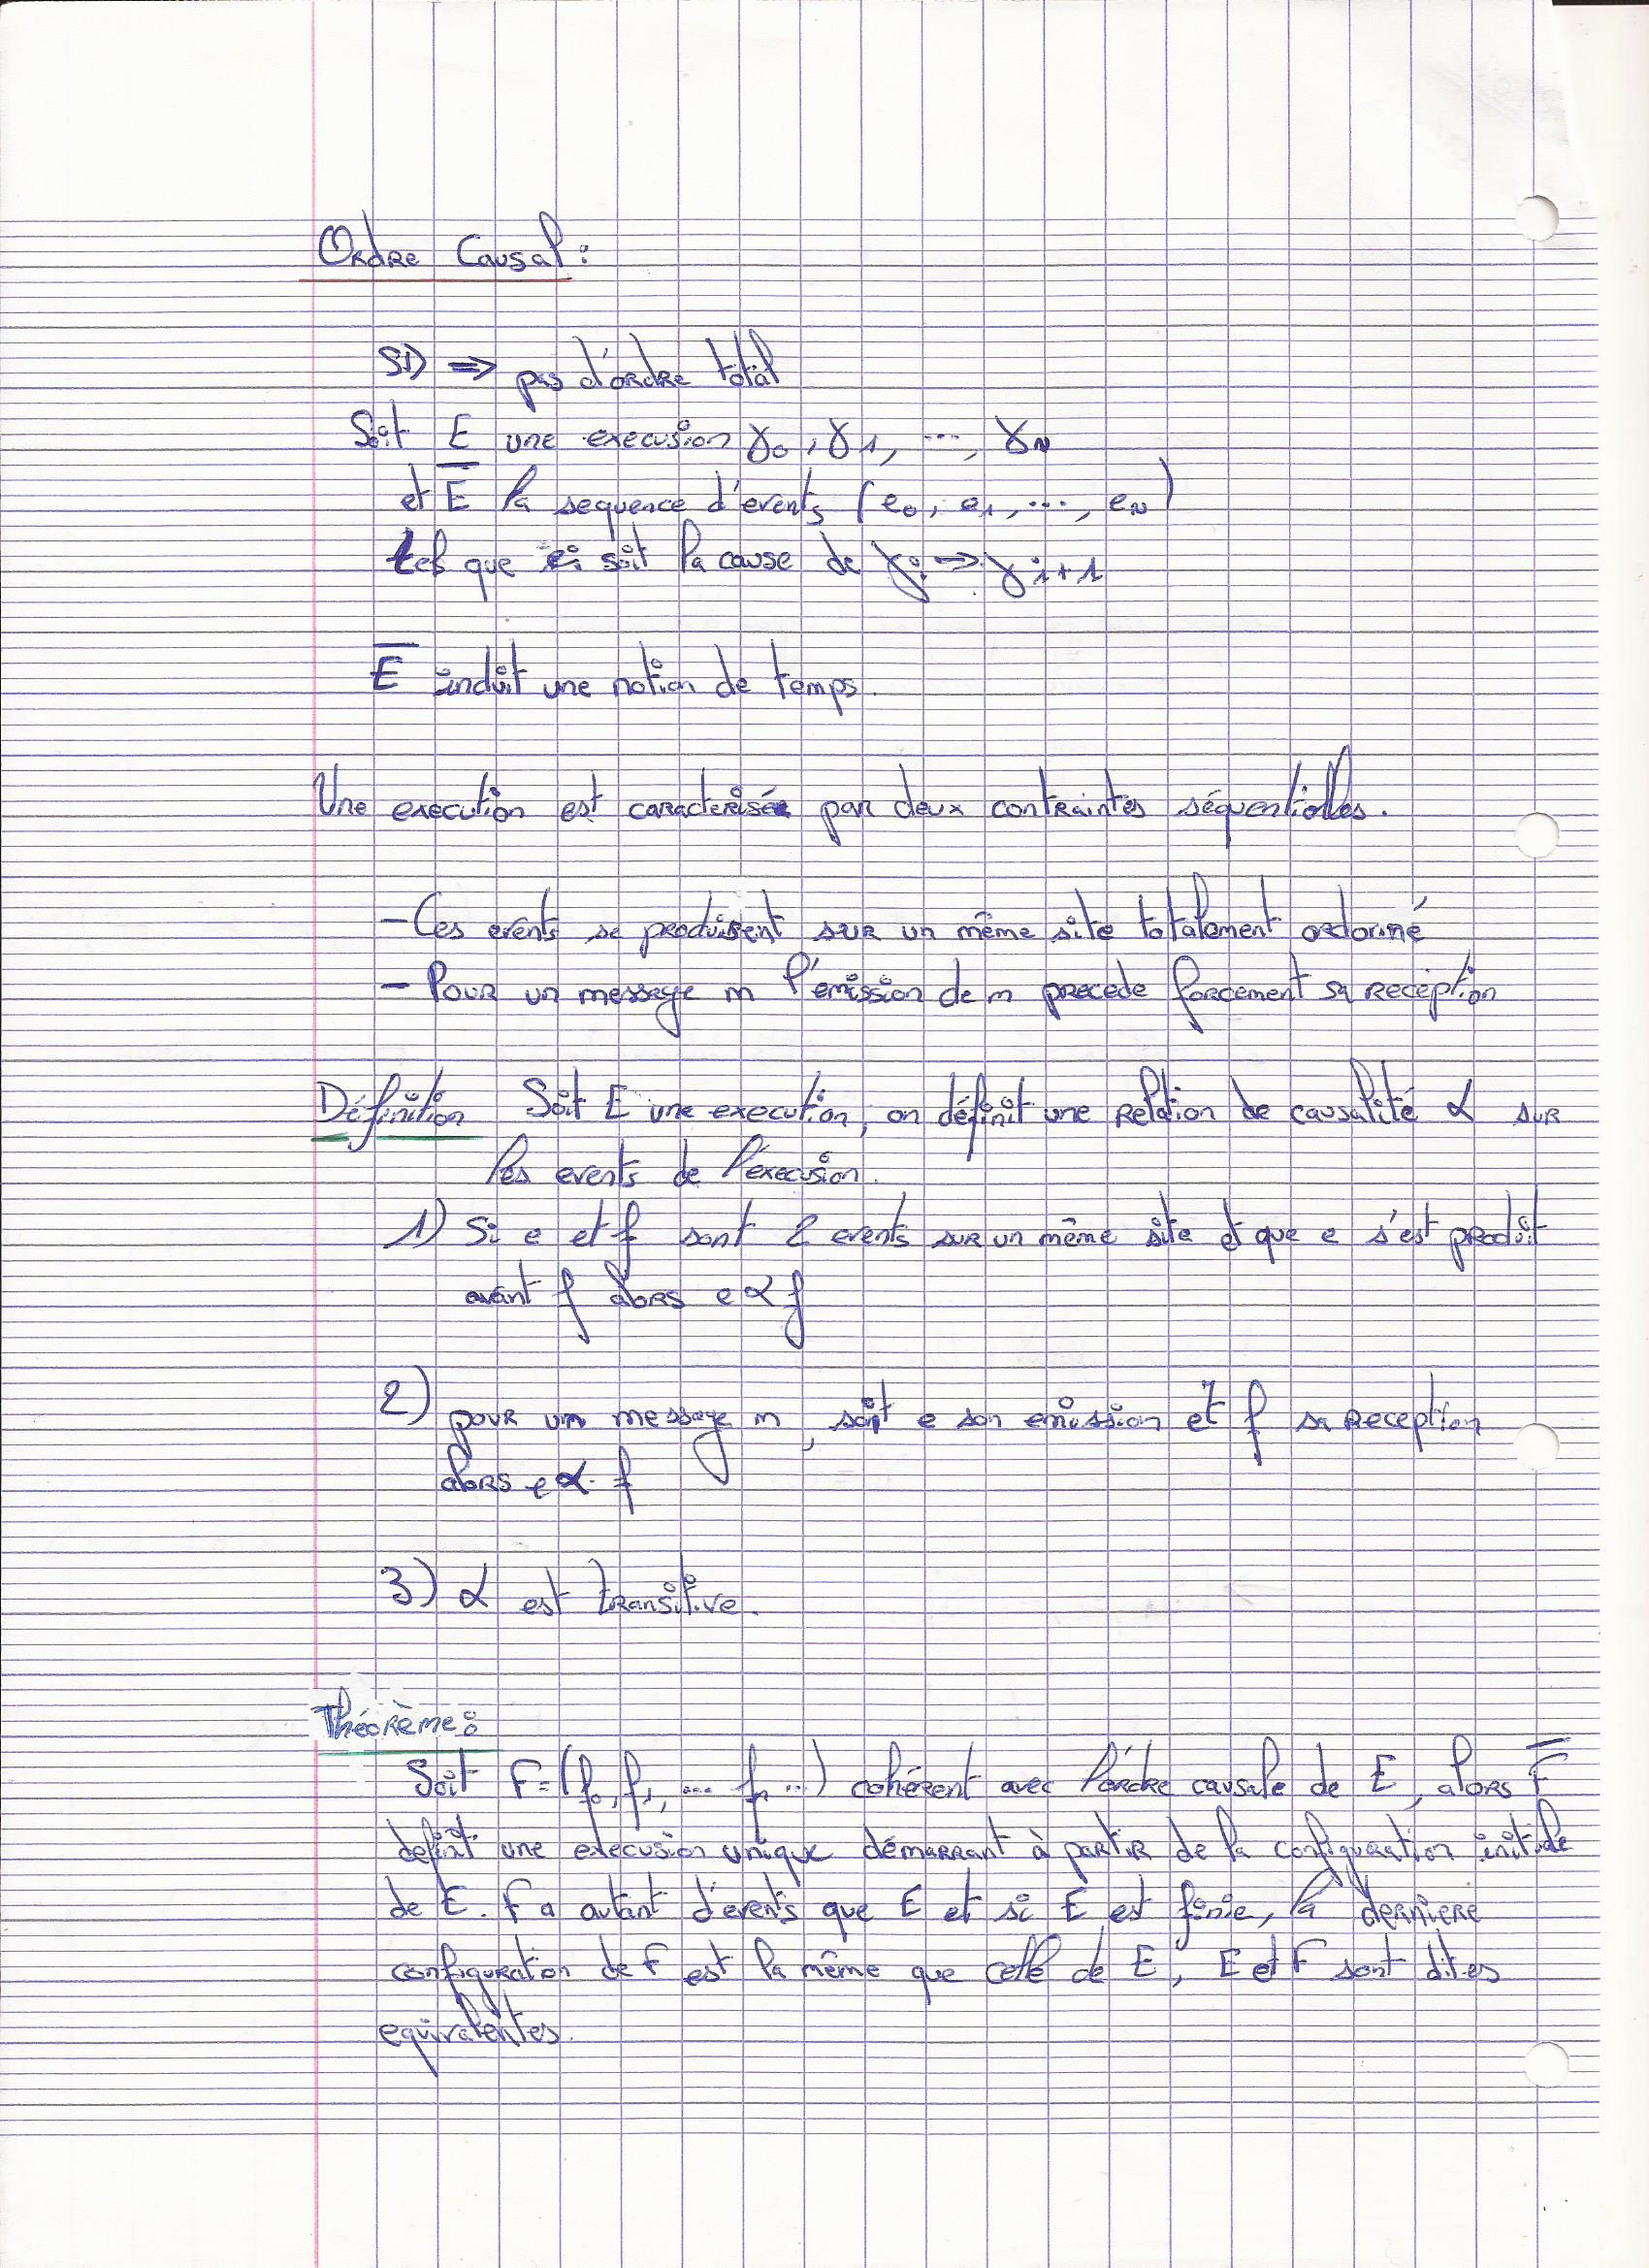 Ordre Causal :
SD ⇒ pas d'ordre total
Soit E une execusion γ0, γ1, ..., γn
et E̅ la sequence d'events (e0, e1, ..., en)
tel que ei soit la cause de γi → γi+1
E̅ induit une notion de temps.
Une execution est caracterisée par deux contraintes séquentielles.
- Ces events se produisent sur un même site totalement ordonné
- Pour un message m l'émission de m precede forcement sa reception
Définition Soit E une execution, on définit une relation de causalité α sur
les events de l'execusion.
1) Si e et f sont 2 events sur un même site et que e s'est produit
avant f alors e α f
2) pour un message m, soit e son emission et f sa reception
alors e α f
3) α est transitive.
Théorème :
Soit F = (f0, f1, ... fn ...) cohérent avec l'ordre causale de E, alors F̅
definit une execusion unique démarrant à partir de la configuration initiale
de E. F a autant d'events que E et si E est finie, la derniere
configuration de F est la même que celle de E, E et F sont dites
equivalentes.